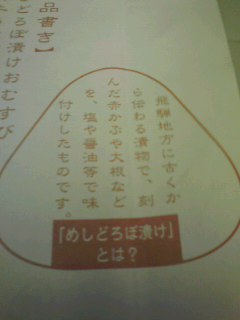 品書き】
どろぼ漬けおむすび
飛騨地方に古くか
ら伝わる漬物で、刻
んだ赤かぶや大根など
を、塩や醤油等で味
付けしたものです。
「めしどろぼ漬け」
とは？